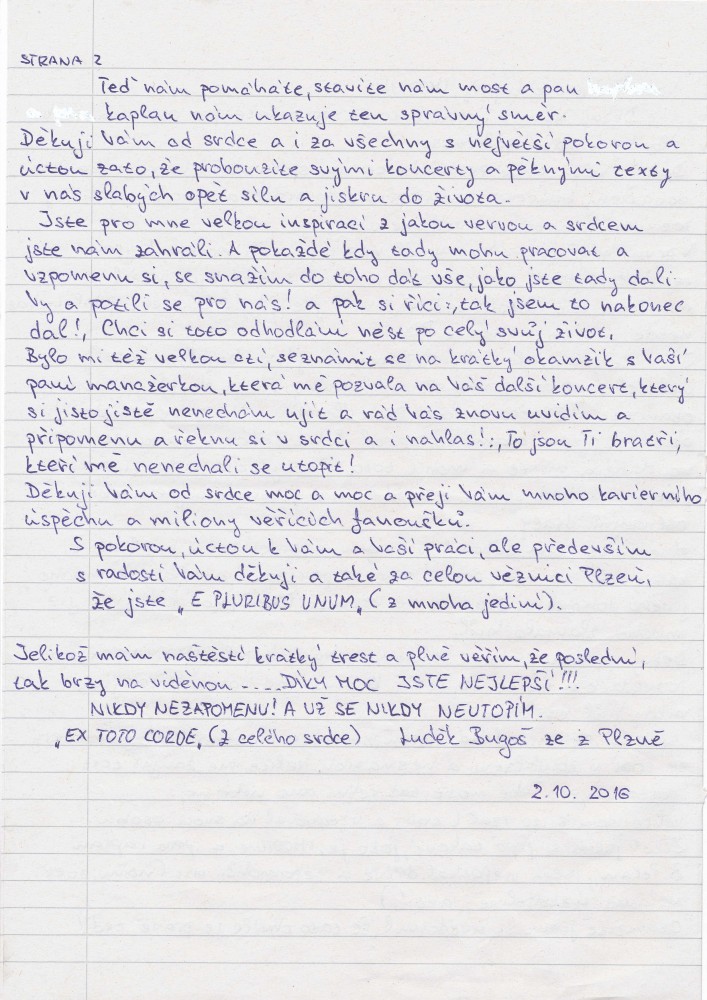 STRANA 2
Teď nám pomáháte, stavíte nám most a pan
kaplan nám ukazuje ten správný směr.
Děkuji Vám od srdce a i za všechny s největší pokorou a
úctou zato, že probouzíte svými koncerty a pěknými texty
v nás slabých opět sílu a jiskru do života.
Jste pro mne velkou inspirací z jakou vervou a srdcem
jste nám zahráli. A pokaždé kdy tady mohu pracovat a
vzpomenu si, se snažím do toho dát vše, jako jste tady dali
Vy a potili se pro nás! a pak si říci:„tak jsem to nakonec
dal!„ Chci si toto odhodlání nést po celý svůj život.
Bylo mi též velkou ctí, seznámit se na krátký okamžik s Vaší
paní manažerkou, která mě pozvala na Váš další koncert, který
si jistojistě nenechám ujít a rád Vás znovu uvidím a
připomenu a řeknu si v srdci a i nahlas!:„To jsou Ti bratři,
kteří mě nenechali se utopit!
Děkuji Vám od srdce moc a moc a přeji Vám mnoho karierního
úspěchu a miliony věřících fanoušků.
S pokorou, úctou k Vám a Vaší práci, ale především
s radostí Vám děkuji a také za celou věznici Plzeň,
že jste „E PLURIBUS UNUM„ (z mnoha jediní).
Jelikož mám naštěstí krátký trest a plně věřím, že poslední,
tak brzy na viděnou .... DÍKY MOC JSTE NEJLEPŠÍ!!!
NIKDY NEZAPOMENU! A UŽ SE NIKDY NEUTOPÍM.
„EX TOTO CORDE„ (z celého srdce) Luděk Bugoš ze z Plzně
2.10. 2016